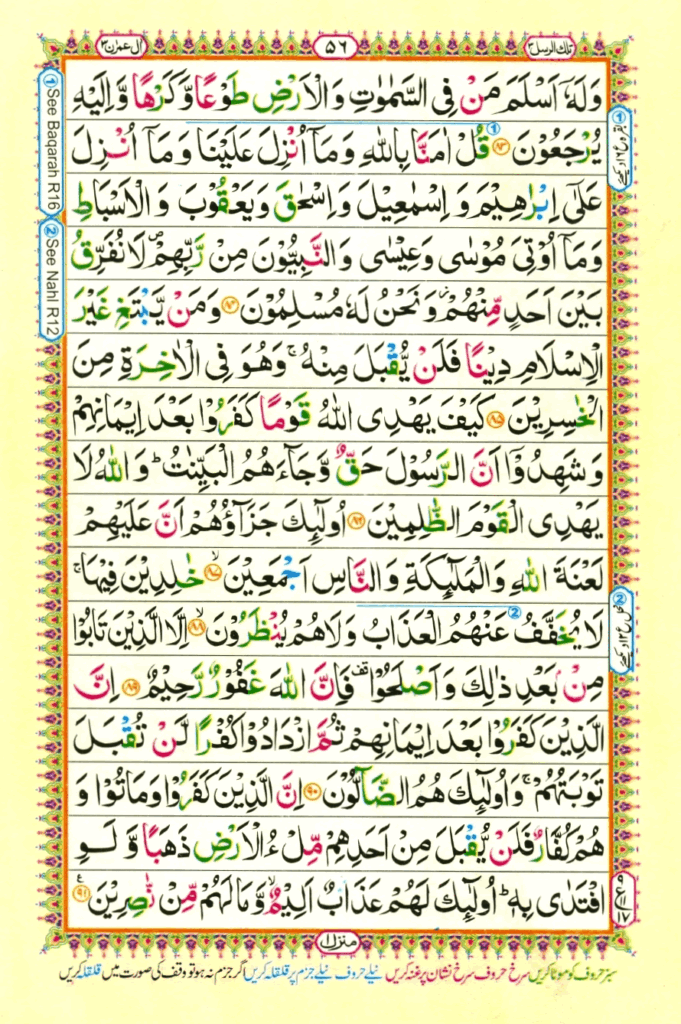 تلك الرسل ٣
٥٦
اٰل عمرٰن ٣
وَلَهٗۤ اَسْلَمَ مَنْ فِى السَّمٰوٰتِ وَالْاَرْضِ طَوْعًا وَّكَرْهًا وَّاِلَيْهِ
يُرْجَعُوْنَ ﴿۸۳﴾ قُلْ اٰمَنَّا بِاللّٰهِ وَمَاۤ اُنْزِلَ عَلَيْنَا وَمَاۤ اُنْزِلَ
عَلٰٓى اِبْرٰهِيْمَ وَ اِسْمٰعِيْلَ وَاِسْحٰقَ وَيَعْقُوْبَ وَالْاَسْبَاطِ
وَمَاۤ اُوْتِىَ مُوْسٰى وَعِيْسٰى وَالنَّبِيُّوْنَ مِنْ رَّبِّهِمْ ۖ لَا نُفَرِّقُ
بَيْنَ اَحَدٍ مِّنْهُمْ ۫ وَنَحْنُ لَهٗ مُسْلِمُوْنَ ﴿۸۴﴾ وَمَنْ يَّبْتَغِ غَيْرَ
الْاِسْلَامِ دِيْنًا فَلَنْ يُّقْبَلَ مِنْهُ ۚ وَهُوَ فِى الْاٰخِرَةِ مِنَ
الْخٰسِرِيْنَ ﴿۸۵﴾ كَيْفَ يَهْدِى اللّٰهُ قَوْمًا كَفَرُوْا بَعْدَ اِيْمَانِهِمْ
وَشَهِدُوْۤا اَنَّ الرَّسُوْلَ حَقٌّ وَّجَآءَهُمُ الْبَيِّنٰتُ ؕ وَاللّٰهُ لَا
يَهْدِى الْقَوْمَ الظّٰلِمِيْنَ ﴿۸۶﴾ اُولٰٓئِكَ جَزَآؤُهُمْ اَنَّ عَلَيْهِمْ
لَعْنَةَ اللّٰهِ وَالْمَلٰٓئِكَةِ وَالنَّاسِ اَجْمَعِيْنَ ۙ﴿۸۷﴾ خٰلِدِيْنَ فِيْهَا ۚ
لَا يُخَفَّفُ عَنْهُمُ الْعَذَابُ وَلَا هُمْ يُنْظَرُوْنَ ۙ﴿۸۸﴾ اِلَّا الَّذِيْنَ تَابُوْا
مِنْۢ بَعْدِ ذٰلِكَ وَاَصْلَحُوْا ۟ فَاِنَّ اللّٰهَ غَفُوْرٌ رَّحِيْمٌ ﴿۸۹﴾ اِنَّ
الَّذِيْنَ كَفَرُوْا بَعْدَ اِيْمَانِهِمْ ثُمَّ ازْدَادُوْا كُفْرًا لَّنْ تُقْبَلَ
تَوْبَتُهُمْ ۚ وَاُولٰٓئِكَ هُمُ الضَّآلُّوْنَ ﴿۹۰﴾ اِنَّ الَّذِيْنَ كَفَرُوْا وَمَاتُوْا وَ
هُمْ كُفَّارٌ فَلَنْ يُّقْبَلَ مِنْ اَحَدِهِمْ مِّلْءُ الْاَرْضِ ذَهَبًا وَّلَوِ
افْتَدٰى بِهٖ ؕ اُولٰٓئِكَ لَهُمْ عَذَابٌ اَلِيْمٌ ۙ وَّمَا لَهُمْ مِّنْ نّٰصِرِيْنَ ﴿۹۱﴾
① See Baqarah R16
② See Nahl R12
ع
٩
١٧
منزل ١
سبز حروف کو موٹا کریں سرخ حروف سرخ نشان پر غنہ کریں نیلے حروف نیلے جزم پر قلقلہ کریں اگر جزم نہ ہو تو وقف کی صورت میں قلقلہ کریں